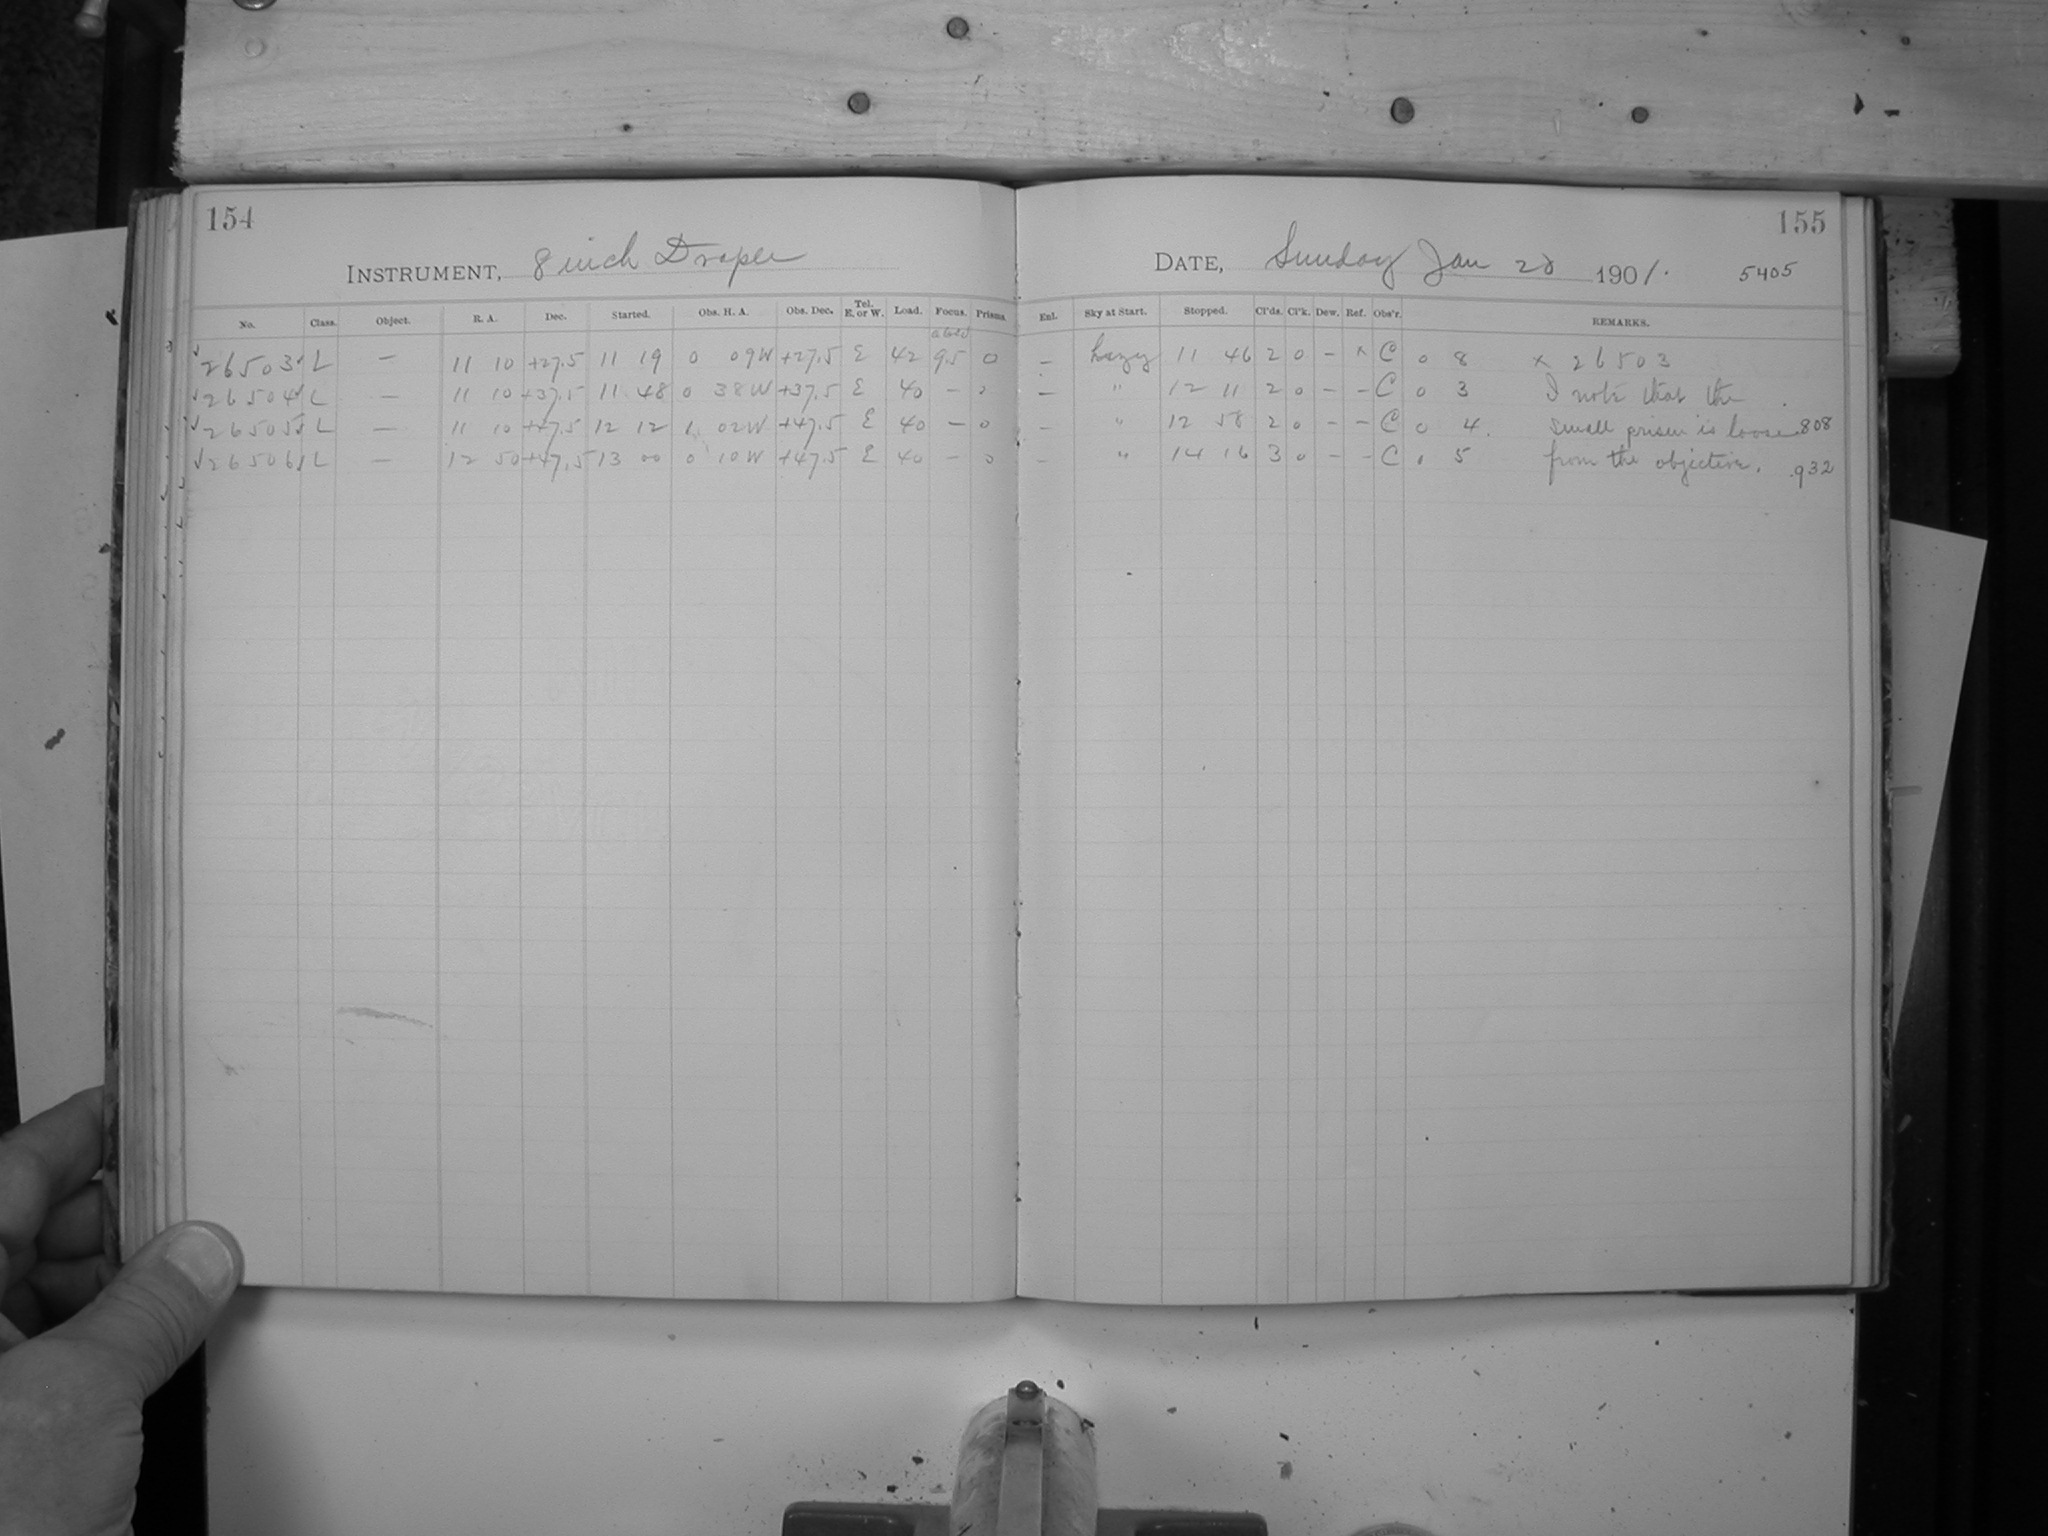 154
INSTRUMENT, 8 inch Draper
No. Class. Object. R. A. Dec. Started. Obs. H. A. Obs. Dec. Tel. E. or W. Load. Focus. Prisms.
26503 L — 11 10 +27.5 11 19 0 09W +27.5 E 42 9.5 0
26504 L — 11 10 +37.5 11 48 0 38W +37.5 E 40 — 0
26505 L — 11 10 +47.5 12 12 1 02W +47.5 E 40 — 0
26506 L — 12 50 +47.5 13 00 0 10W +47.5 E 40 — 0
155
DATE, Sunday Jan 28 1901. 5405
Enl. Sky at Start. Stopped. Cl'ds. Cl'k. Dew. Ref. Obs'r. REMARKS.
— hazy 11 46 2 0 — x C 0 8 x 26503
— " 12 11 2 0 — — C 0 3 I note that the
— " 12 58 2 0 — — C 0 4. small prism is loose 808
— " 14 16 3 0 — — C 0 5 from the objective. .932